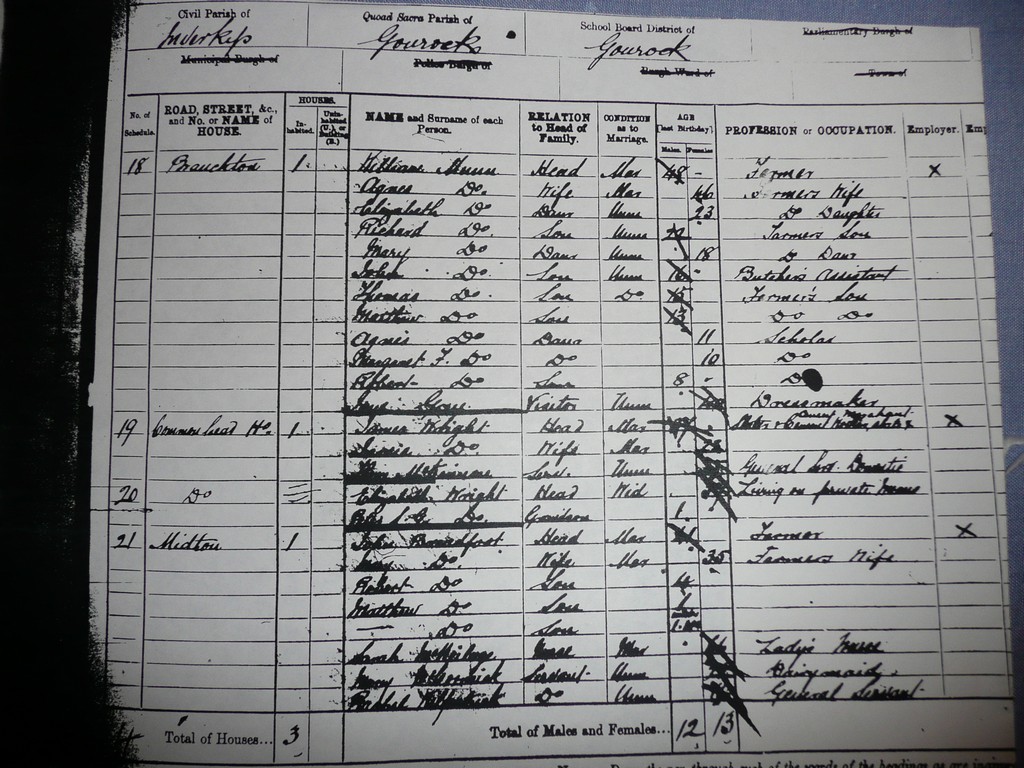 Civil Parish of Quoad Sacra Parish of School Board District of Parliamentary Burgh of
Inverkip Gourock Gourock
Municipal Burgh of Police Burgh of Burgh Ward of Town of
No. of Schedule. ROAD, STREET, &c., and No. or NAME of HOUSE. HOUSES. Inhabited. Uninhabited (U.) or Building (B.) NAME and Surname of each Person. RELATION to Head of Family. CONDITION as to Marriage. AGE [last Birthday] Males. Females PROFESSION or OCCUPATION. Employer. Emp
18 1 William Munn Head Mar 48 - Farmer X
Agnes Do. Wife Mar 46 Farmers Wife
Elizabeth Do Daur Unm 23 Do Daughter
Richard Do. Son Unm Farmers Son
Mary Do Daur Unm 18 Do Daur
John Do. Son Unm 16 - Butchers Assistant
Thomas Do. Son Do. 15 Farmer's Son
Matthew Do Son 13 Do Do
Agnes Do Daur 11 Scholar
Margaret F. Do Do 10 Do
Robert Do Son 8 - Do
Gray Visitor Unm Dressmaker
19 Common head Ho. 1 James Wright Head Mar X
Do. Wife Mar
Serv. Unm General Serv. Domestic
20 Do Elizabeth Wright Head Wid Living on private means
Do. Grandson 1
21 Midton 1 John Broadfoot Head Mar 41 Farmer X
Do. Wife Mar 35 Farmers Wife
Robert Do Son 4
Matthew Do Son
Do Son
Sarah Nurse Mar Lady's Nurse
Mary McCormick Servant Unm Dairymaid
Kilpatrick Do Unm General Servant
Total of Houses... 3 Total of Males and Females... 12 13